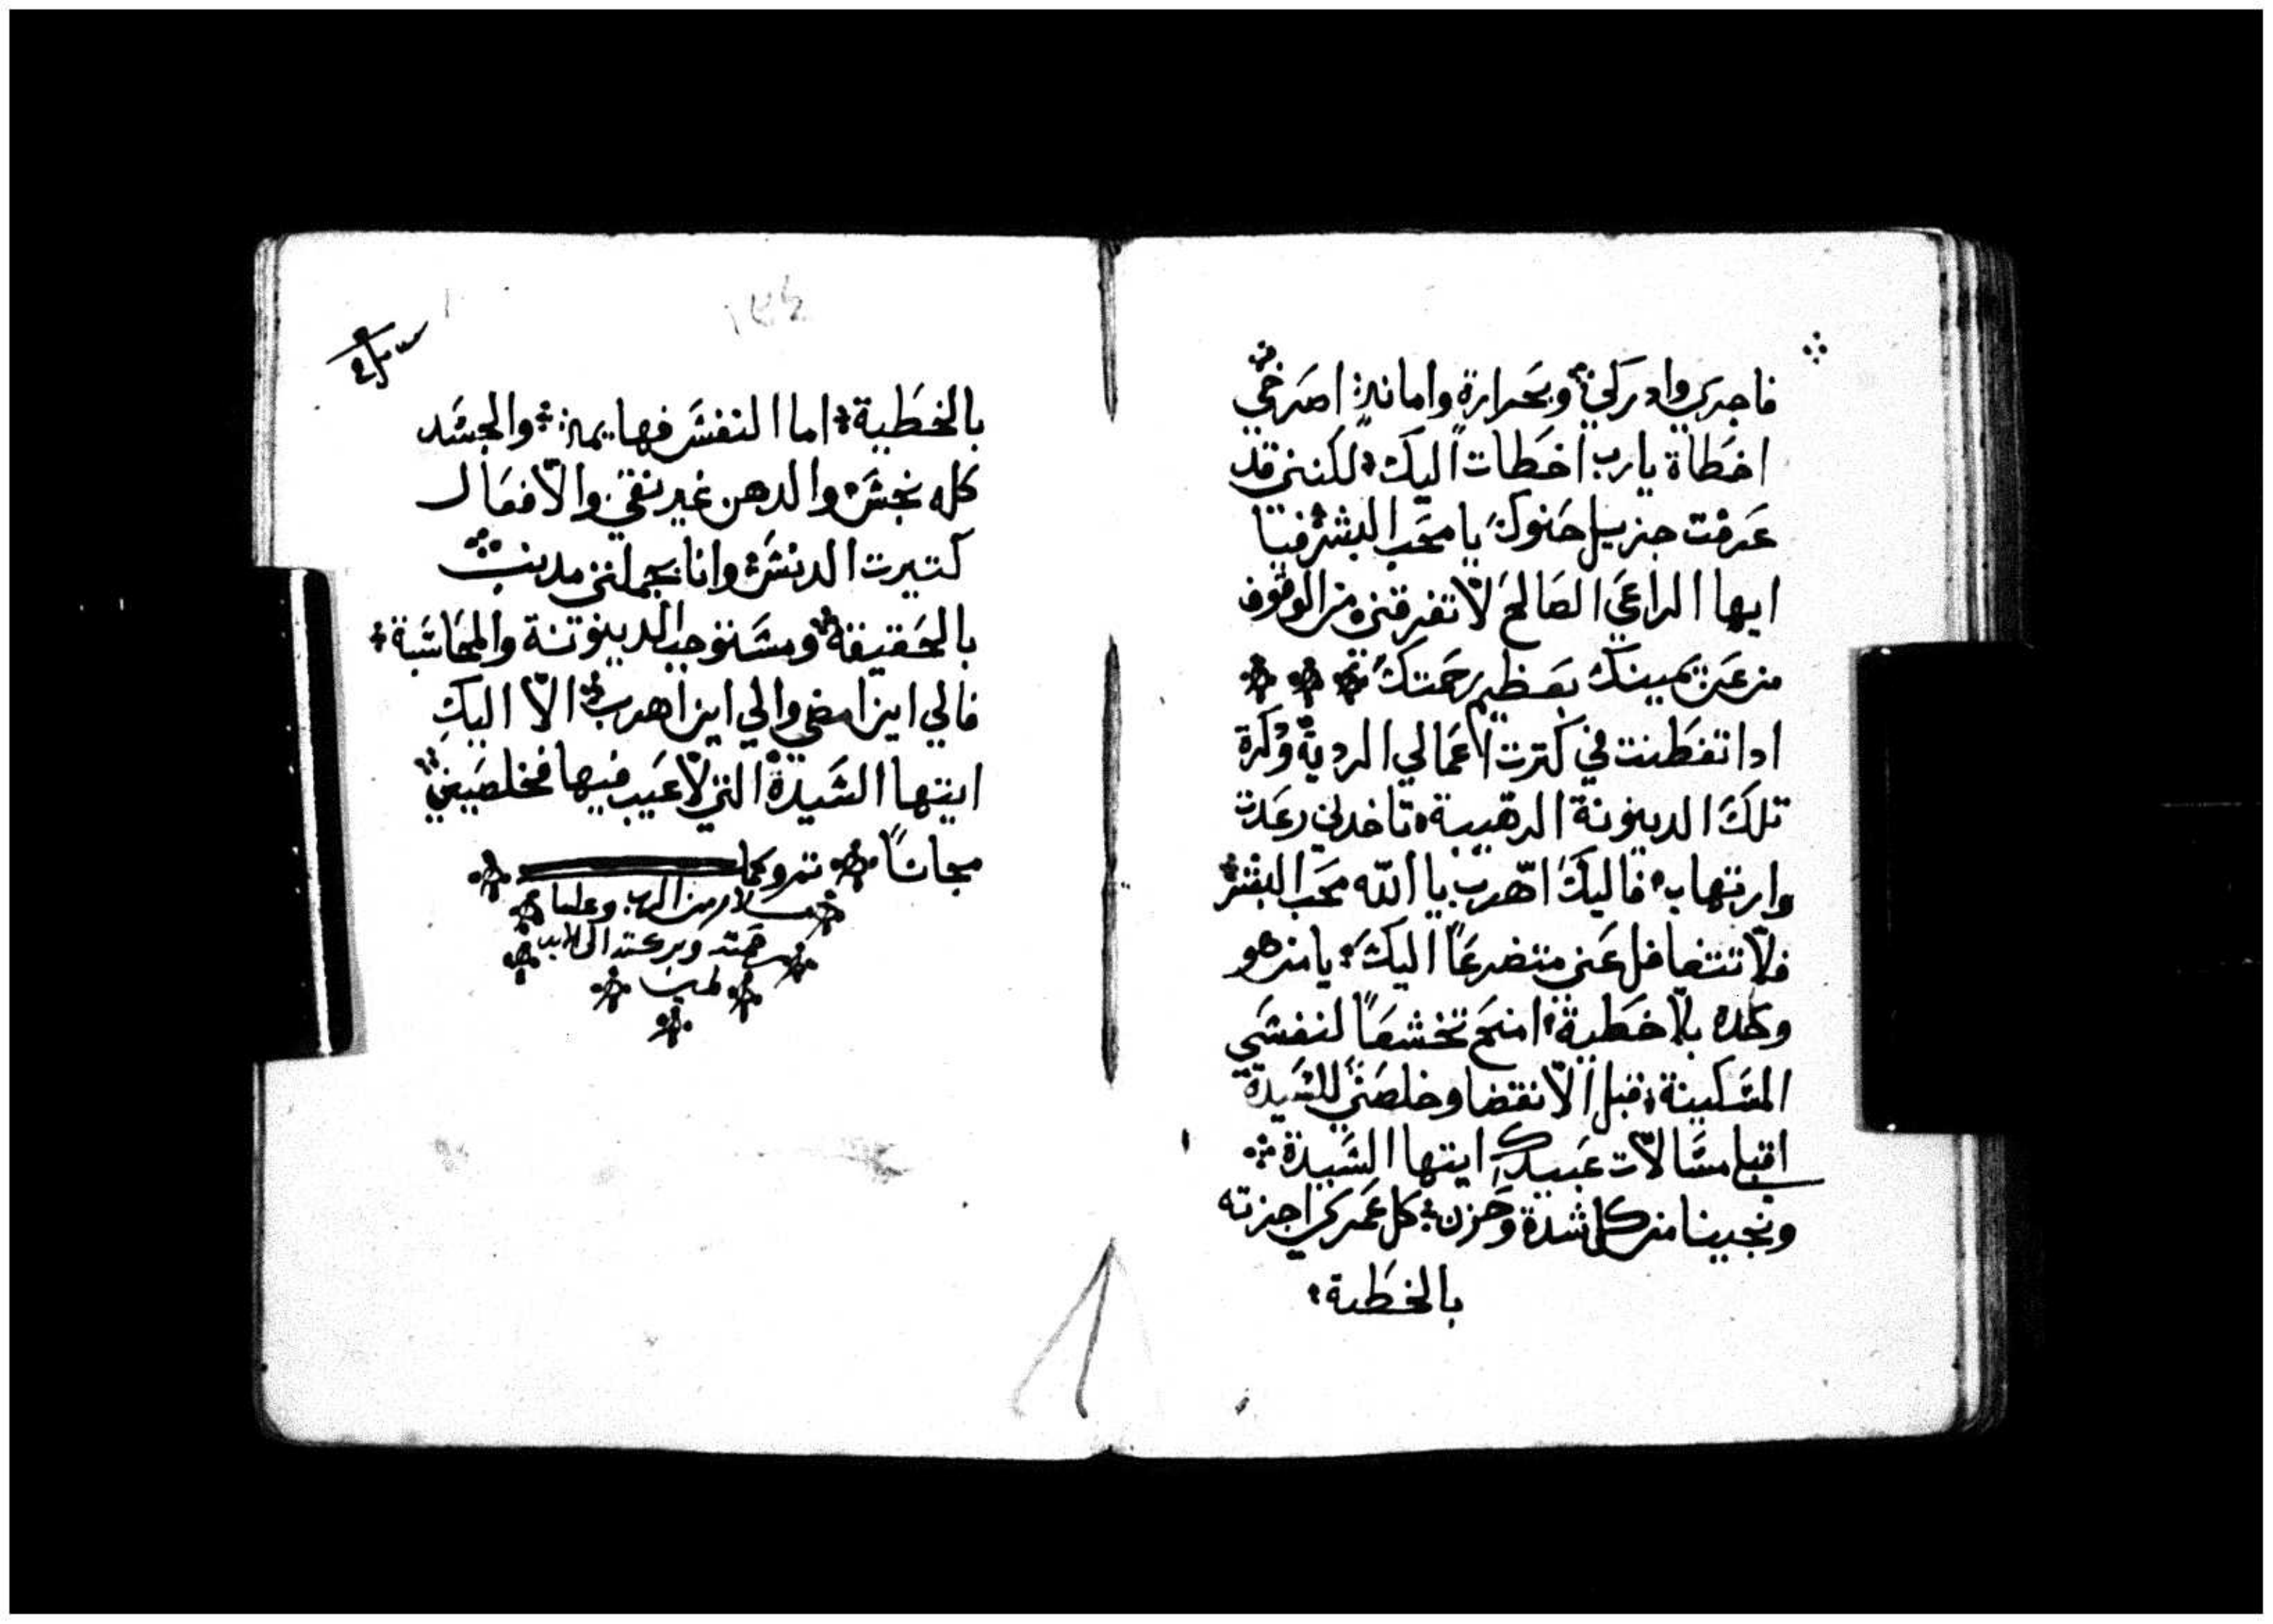 فاجري وادركني وبحرارة وامانة اصرخي
اخطاة يارب اخطات اليك لكنني قد
عرفت جزيل حنوك يا محب البشر فيتا
ايها الراعي الصالح لا تفرقني من الوقوف
من عن يمينك بعظيم رحمتك
ادا تفطنت في كترت اعمالي الردية وكرة
تلك الدينونة الرهيبة تاخدني رعدة
وارتهاب فاليك اهرب يا الله محب البشر
فلا تتغافل عني متضرعاً اليك يا من هو
وحده بلا خطية امنح تخشعاً لنفسي
المسكينة قبل الانقضا وخلصني للسيدة
اقبلي مسالات عبيدك ايتها السيدة
ونجينا من كل شدة وحزن كل عمري اجزته
بالخطية
١٣٤
بالخطية اما النفس فها يمة والجسد
كله نجس والدهن غير نقي والافعال
كتيرت الدنس وانا بجملتي مدنب
بالحقيقة ومستوجب الدينوتنة والمحاسبة
فالي اين امضي والي اين اهرب الا اليك
ايتها السيدة التي لا عيب فيها فخلصيني
مجاناً تم وكما
سلام من الرب وعلينا
رحمته وبركته الى الابد